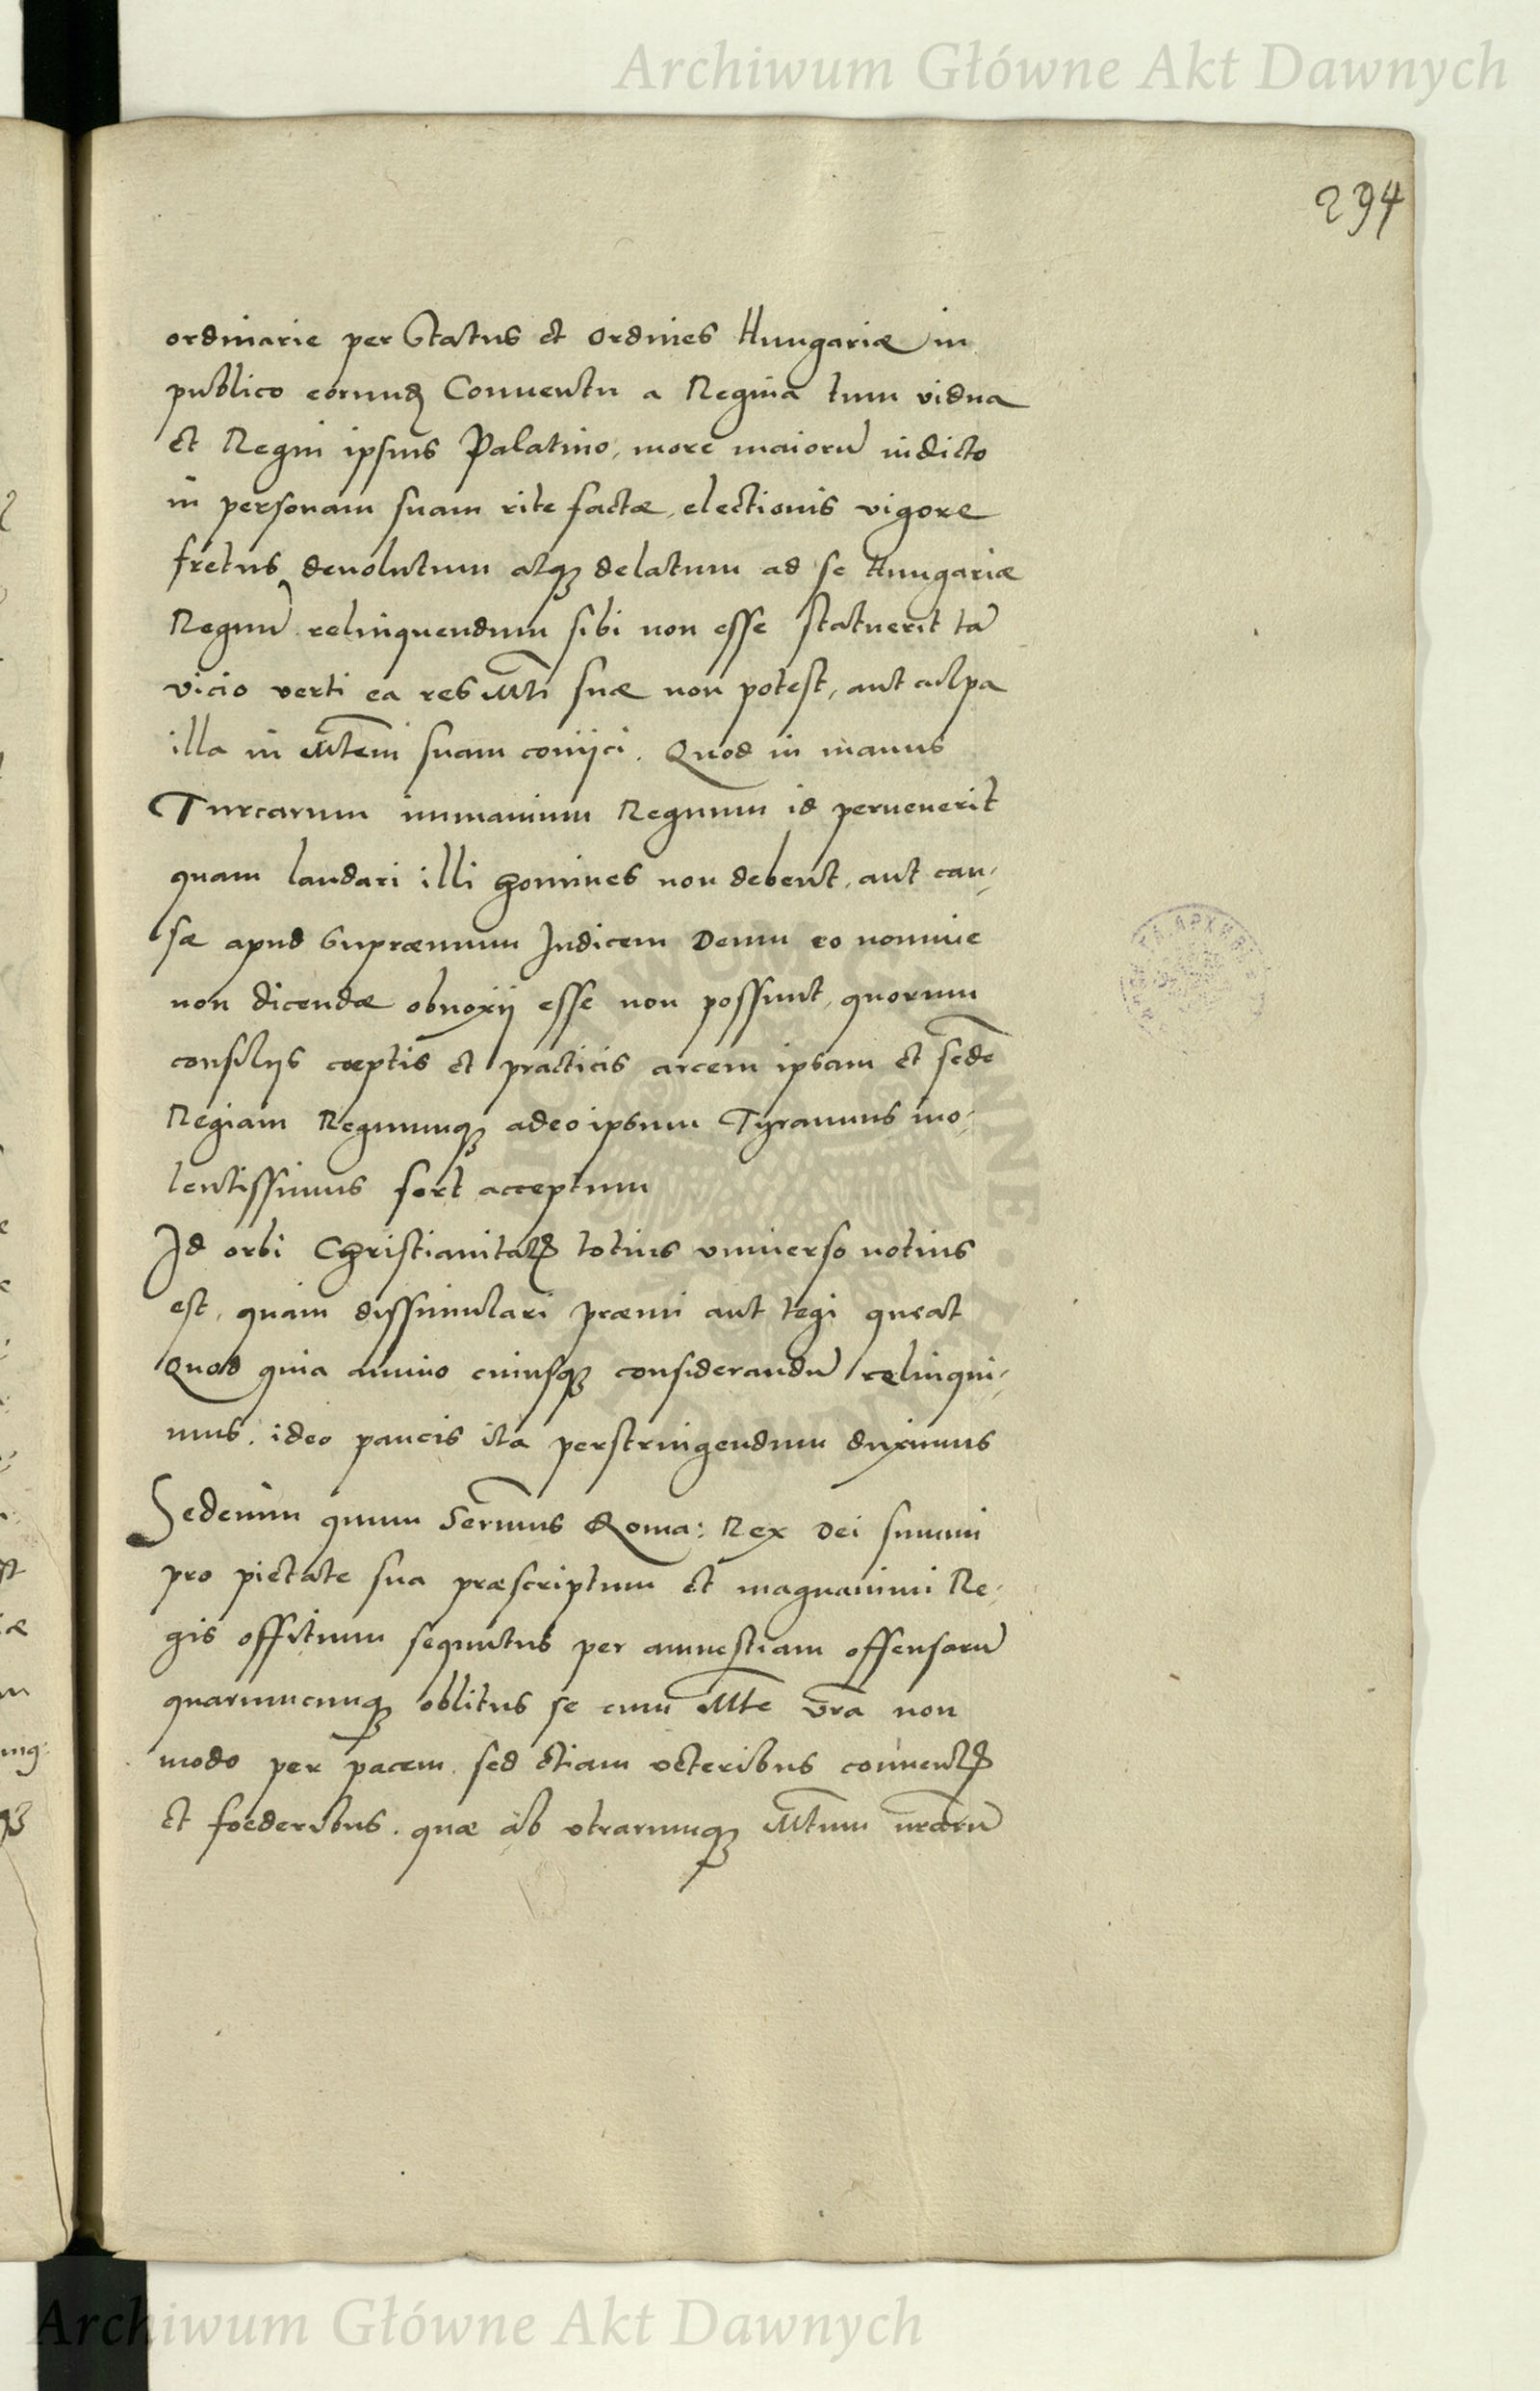 Archiwum Główne Akt Dawnych
294
ordinarie per Status et Ordines Hungariæ in
publico eorundꝫ Conuentu a Regina tum vidua
et Regni ipsius Palatino, more maiorū indicto
in personam suam rite factæ, electionis vigore
fretus deuolutum atqꝫ delatum ad se Hungariæ
Regnū relinquendum sibi non esse statuerit tā
vicio verti ea res Mti suæ non potest, aut culpa
illa in Mtem suam coniici. Quod in manus
Turcarum immanium Regnum id peruenerit
quam laudari illi homines non debent, aut cau-
sæ apud Supræmum Iudicem Deum eo nomine
non dicendæ obnoxij esse non possunt, quorum
consilijs cœptis et practicis arcem ipsam et sedē
Regiam Regnumqꝫ adeo ipsum Tyrannus vio-
lentissimus fert acceptum
Id orbi Christianitatꝭ totius vniuerso notius
est, quam dissimulari præmi aut tegi queat
Quod quia animo cuiusqꝫ considerandū relinqui-
mus, ideo paucis ita perstringendum duximus
Sedenim quum Sermus Roma: Rex Dei summi
pro pietate sua præscriptum et magnanimi Re-
gis offitium sequutus per amnestiam offensarū
quarumcunqꝫ oblitus se cum Mte vrā non
modo per pacem, sed etiam veteribus conuentꝭ
et foederibus, quæ ab vtrarumqꝫ Mtum vrarū
Archiwum Główne Akt Dawnych